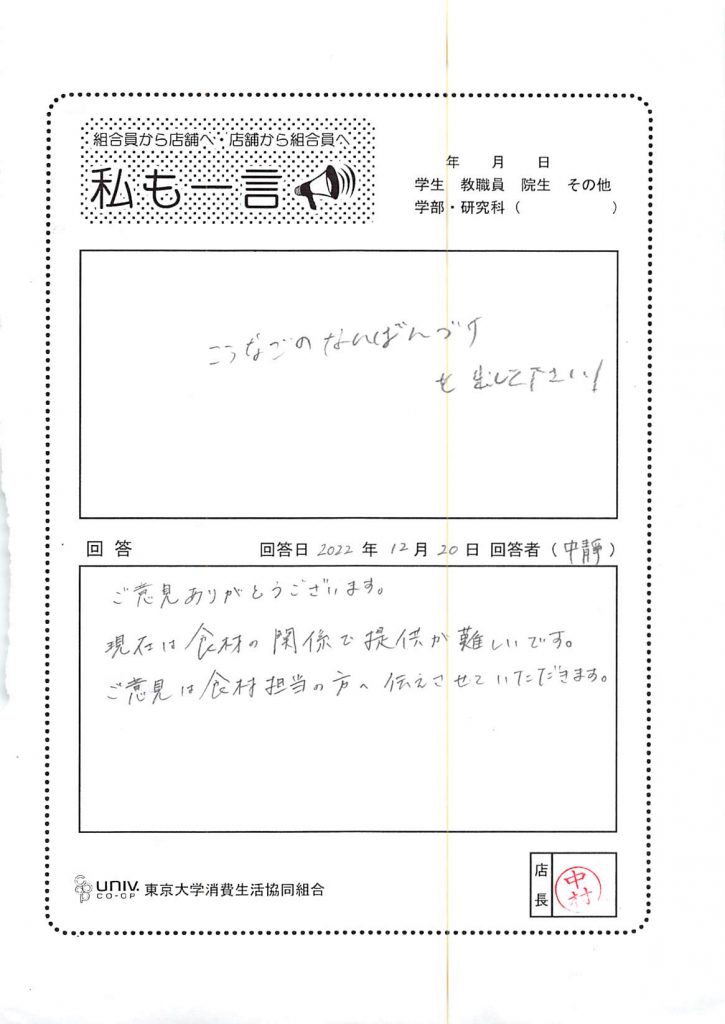 組合員から店舗へ・店舗から組合員へ
私も一言
年 月 日
学生 教職員 院生 その他
学部・研究科 ( )
こうなごのなんばんづけ
を出して下さい!
回答 回答日 2022 年 12 月 20 日 回答者 (中靜)
ご意見ありがとうございます。
現在は食材の関係で提供が難しいです。
ご意見は食材担当の方へ伝えさせていただきます。
coop UNIV. CO-OP 東京大学消費生活協同組合
店長
中村